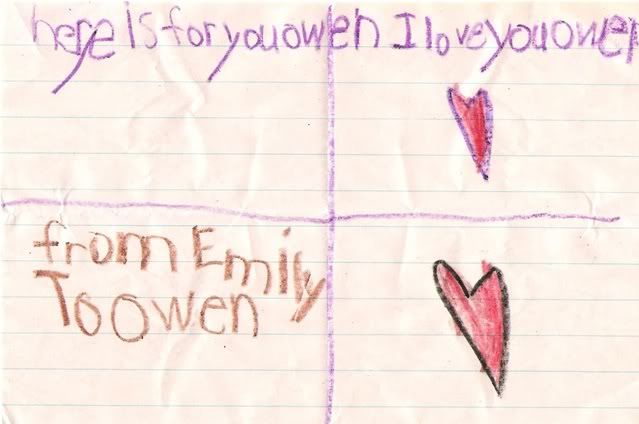 here is for you owen I love you owen
from Emily
To owen